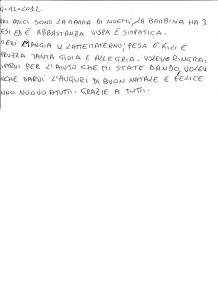 4-12-2012.
ARI AMICI SONO LA MAMMA DI NOEMI, LA BAMBINA HA 3
ESI ED È ABBASTANZA VISPA E SIMPATICA.
MANGIA IL LATTE MATERNO, PESA 6 KILI E
TANTA GIOIA E ALLEGRIA. VOLEVO RINGRA=
IARVI PER L'AIUTO CHE MI STATE DANDO, VOLEV
NCHE DARVI L'AUGURI DI BUON NATALE E FELICE
NNO NUOVO A TUTTI. GRAZIE A TUTTI.